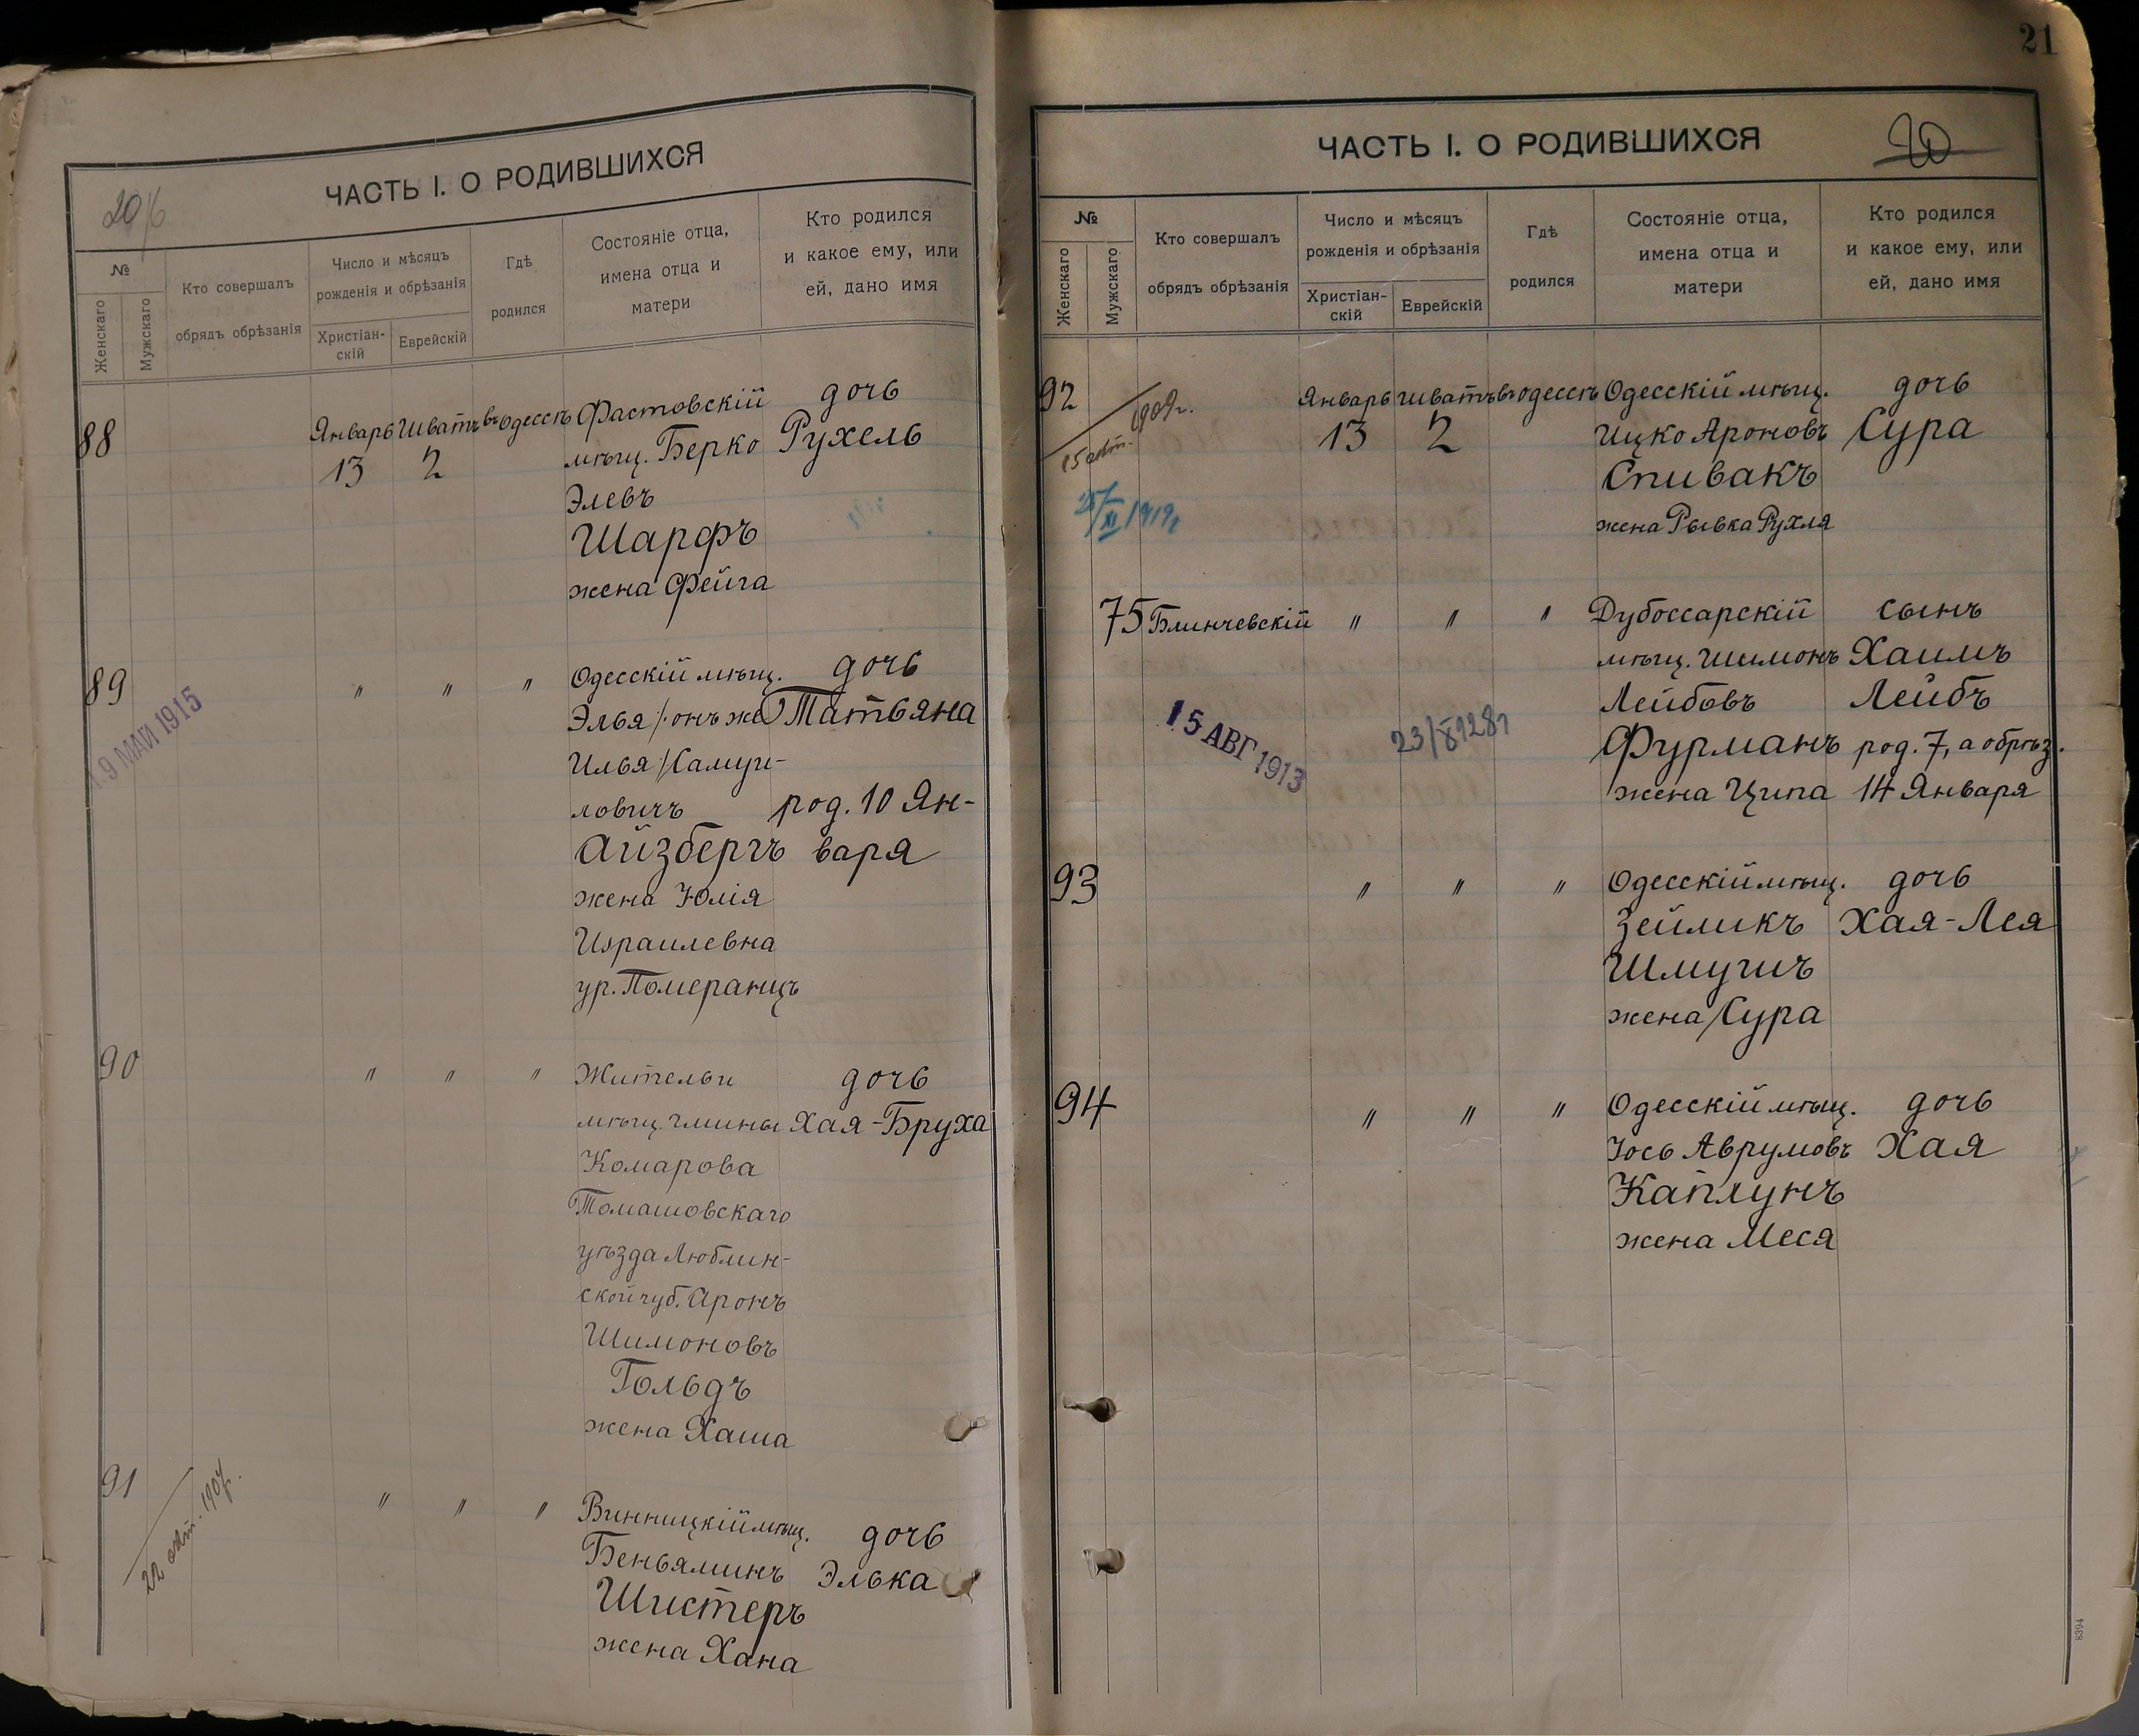 ЧАСТЬ I. О РОДИВШИХСЯ
№
Женскаго
Мужскаго
Кто совершалъ
обрядъ обрѣзанія
Число и мѣсяцъ
рожденія и обрѣзанія
Христіан-
скій
Еврейскій
Гдѣ
родился
Состояніе отца,
имена отца и
матери
Кто родился
и какое ему, или
ей, дано имя
88 Январь Шватъ въ Одессѣ Фастовскій дочь
13 2 мѣщ. Берко Рухель
Элевъ
Шарфъ
жена Фейга
89 " " " Одесскій мѣщ. дочь
19 МАЙ 1915
Элья /: онъ же Татьяна
Илья / Самуи-
ловичъ род. 10 Ян-
Айзбергъ варя
жена Юлія
Израилевна
ур. Померанцъ
90 " " " Жители дочь
мѣщ. гмины Хая-Бруха
Комарова
Томашовскаго
уѣзда Люблин-
ской губ. Аронъ
Шимоновъ
Гольдъ
жена Хаша
91 " " " Винницкій мѣщ. дочь
22 1907.
Беньяминъ Элька
Шистеръ
жена Хана
21
ЧАСТЬ I. О РОДИВШИХСЯ
20
№
Женскаго
Мужскаго
Кто совершалъ
обрядъ обрѣзанія
Число и мѣсяцъ
рожденія и обрѣзанія
Христіан-
скій
Еврейскій
Гдѣ
родился
Состояніе отца,
имена отца и
матери
Кто родился
и какое ему, или
ей, дано имя
92 Январь Шватъ въ Одессѣ Одесскій мѣщ. дочь
1909г.
15
13 2 Ицко Ароновъ Сура
Спивакъ
XI 1919г
жена Рывка Рухля
75 Блинчевскій " " " Дубоссарскій сынъ
мѣщ. Шимонъ Хаимъ
Лейбовъ Лейбъ
15 АВГ 1913
Фурманъ род. 7, а обрѣз.
жена Ципа 14 Января
93 " " " Одесскій мѣщ. дочь
Зейликъ Хая-Лея
Шмугиъ
жена Сура
94 " " " Одесскій мѣщ. дочь
Іось Аврумовъ Хая
Каплунъ
жена Меся
8394